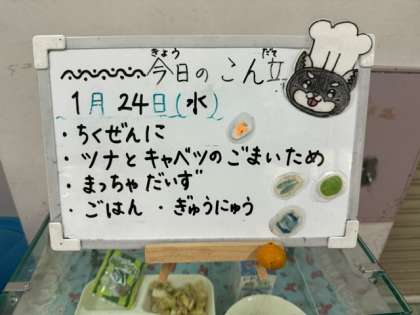 今日のこん立
きょう だて
1月24日(水)
・ちくぜんに
・ツナとキャベツのごまいため
・まっちゃだいず
・ごはん ・ぎゅうにゅう